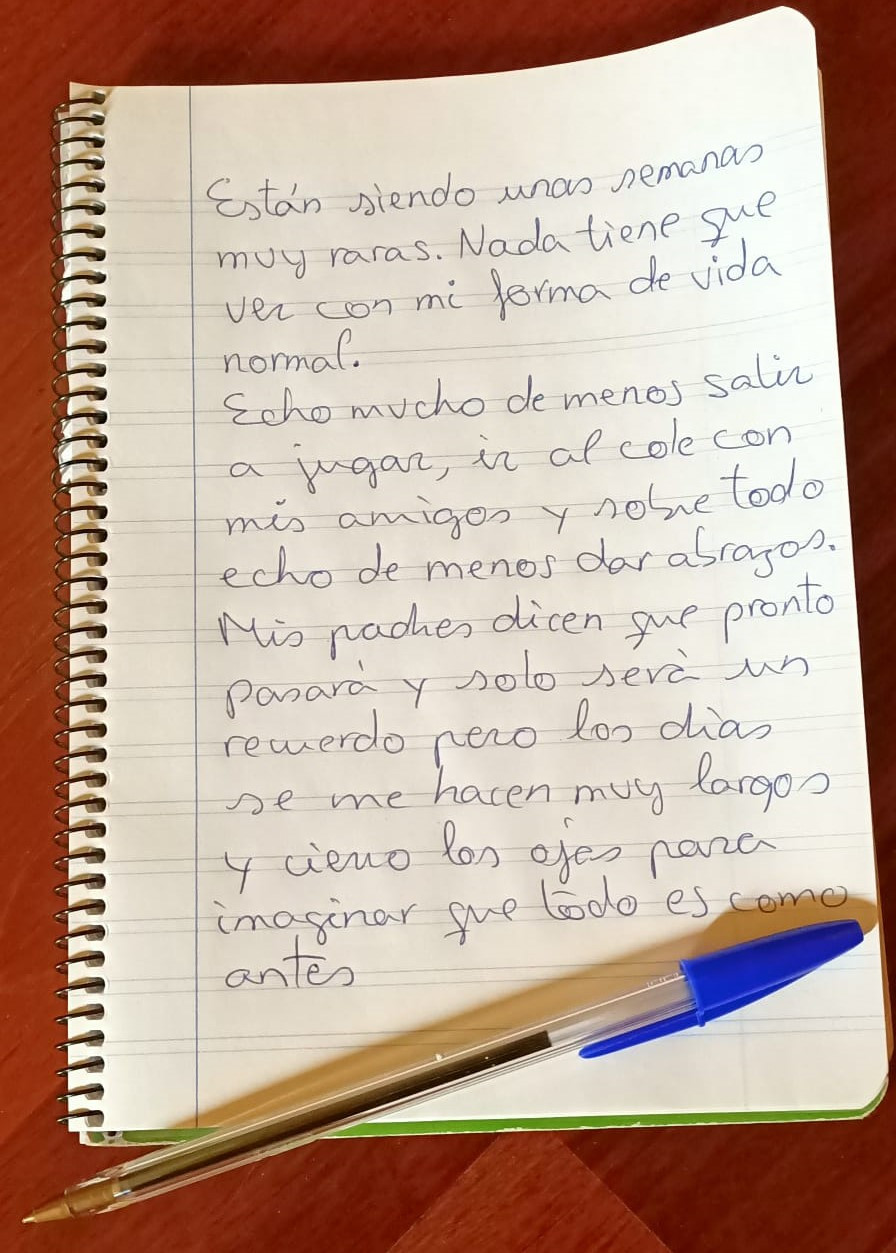 Están siendo unas semanas
muy raras. Nada tiene que
ver con mi forma de vida
normal.
Echo mucho de menos salir
a jugar, ir al cole con
mis amigos y sobre todo
echo de menos dar abrazos.
Mis padres dicen que pronto
pasará y solo será un
recuerdo pero los días
se me hacen muy largos
y cierro los ojos para
imaginar que todo es como
antes